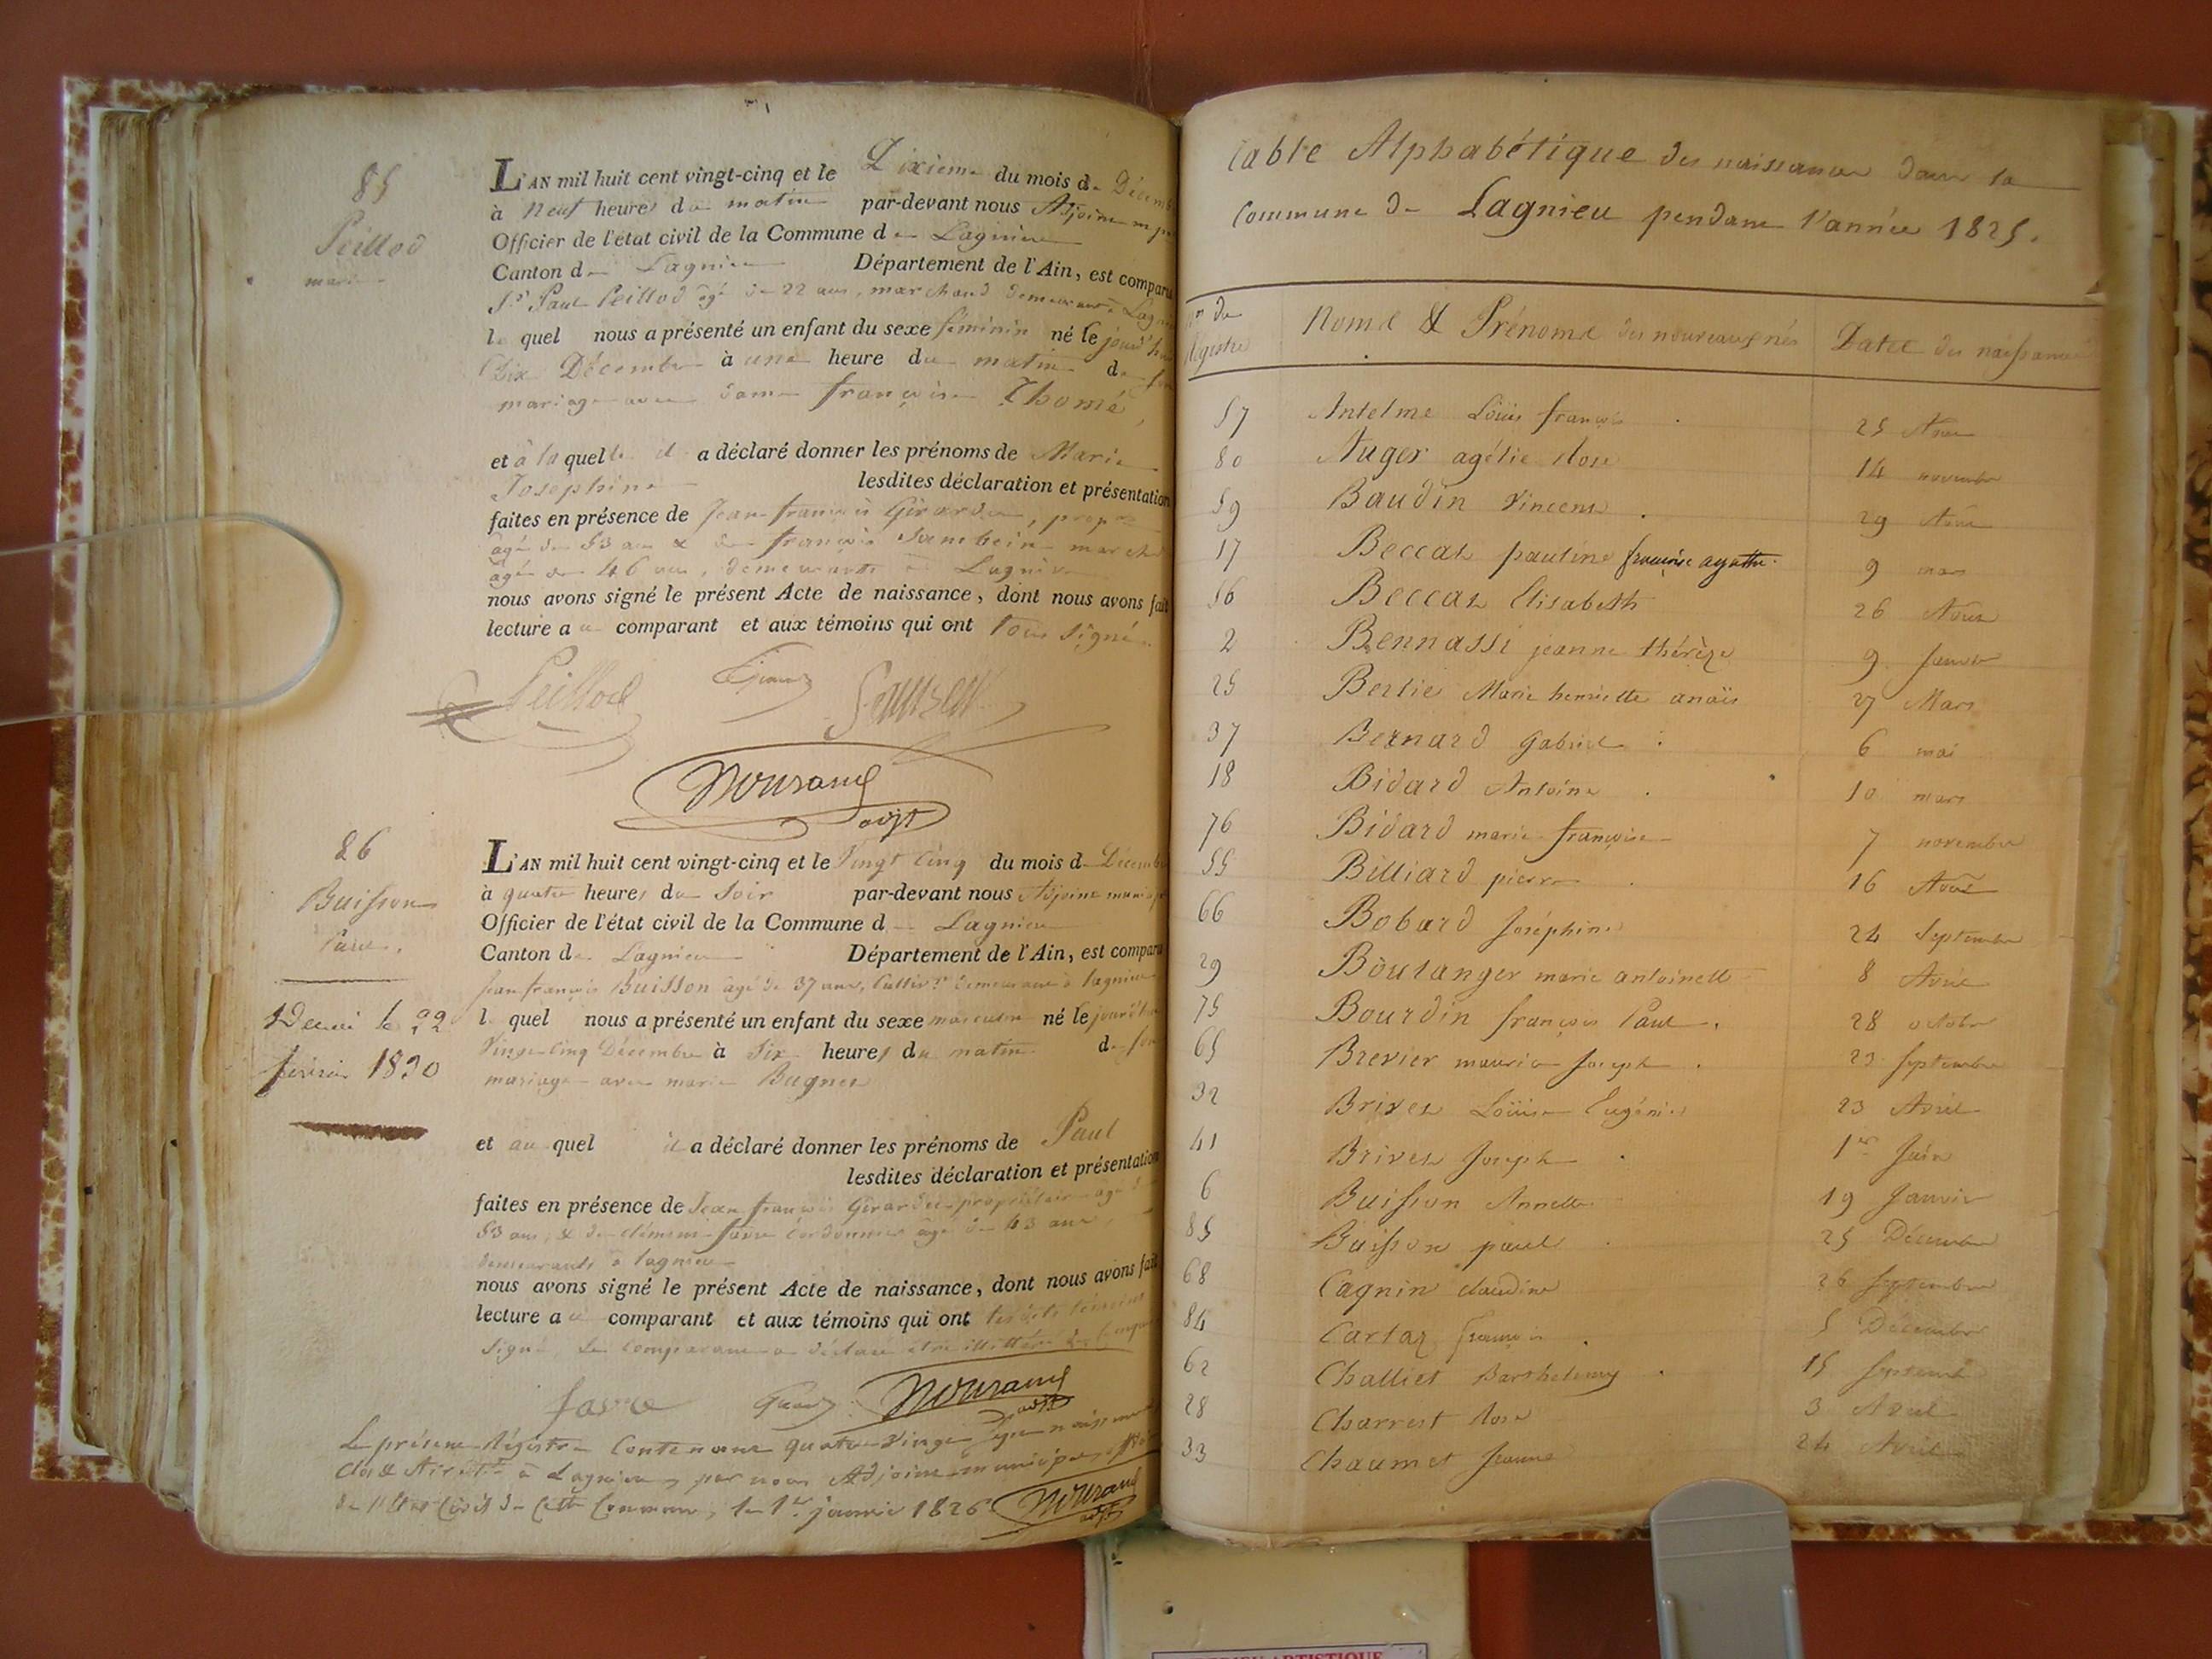 85
Peillod
marie
L'AN mil huit cent vingt-cinq et le Dixieme du mois de Décemb
à neuf heures du matin par-devant nous Adjoint
Officier de l'état civil de la Commune de Lagnieu
Canton de Lagnieu Département de l'Ain, est comparu
Sr Paul Peillod âgé de 22 ans, marchand demeurant à Lagn
le quel nous a présenté un enfant du sexe féminin né le jourd'hui
Dix Décembre à une heure du matin de son
mariage avec dame françoise Thomé
et à la quelle il a déclaré donner les prénoms de Marie
Josephine lesdites déclaration et présentation
faites en présence de Jean françois Girardin, propre
âgé de 53 ans & de françois marchd
âgé de 46 ans, demeurants à Lagnieu
nous avons signé le présent Acte de naissance, dont nous avons fait
lecture au comparant et aux témoins qui ont tous signé
Peillod
Mouraud
adjt
86
Buisson
Paul.
Décédé le 22
février 1830
L'AN mil huit cent vingt-cinq et le Vingt Cinq du mois de Décemb
à quatre heures du Soir par-devant nous Adjoint
Officier de l'état civil de la Commune de Lagnieu
Canton de Lagnieu Département de l'Ain, est comparu
Jean françois Buisson âgé de 37 ans, Cultivr demeurant à lagnieu
le quel nous a présenté un enfant du sexe masculin né le jourd'hui
Vingt-Cinq Décembre à Six heures du matin de son
mariage avec marie Bugnet
et au quel il a déclaré donner les prénoms de Paul
lesdites déclaration et présentation
faites en présence de Jean françois Girardin propriétaire âgé de
53 ans, & de clément favre Cordonnier âgé de 43 ans,
demeurants à lagnieu
nous avons signé le présent Acte de naissance, dont nous avons fait
lecture au comparant et aux témoins qui ont les dits témoins
signé, le comparant a déclaré être illittéré de ce enquis
favre Mouraud
adjt
Le présent Régistre Contenant quatre Vingt Six naissances
Clos & Arrêté à Lagnieu, par nous Adjoint municipal
de l'Etat Civil de Cette Commune, le 1er janvier 1826 Mouraud
adjt
Table Alphabétique des naissances dans la
Commune de Lagnieu pendant l'année 1825.
nos du Régistre Noms & Prénoms des nouveaux nés Dates des naissances
57 Antelme Loüis françois 25 Aout
80 Auger agélie Rose 14 novembre
59 Baudin Vincent 29 Aout
17 Beccat pauline françoise agathe 9 mars
56 Beccat Elisabeth 26 Aout
2 Bennassi jeanne thérèze 9 Janvier
25 Berlie Marie henriette anaïs 27 Mars
37 Bernard Gabriel 6 mai
18 Bidard Antoine 10 mars
76 Bidard marie françoise 7 novembre
55 Billiard pierre 16 Aout
66 Bobard Joséphine 24 Septembre
29 Boulanger marie antoinette 8 Avril
75 Bourdin françois Paul 28 octobre
65 Brevier maurice Joseph 23 Septembre
32 Brivet Loüise Eugénie 23 Avril
41 Brivet Joseph 1er Juin
6 Buisson Annette 19 Janvier
85 Buisson paul 25 Décembre
68 Cagnin claudine 26 Septembre
84 Cartaz françois 5 Décembre
62 Challiet Barthelemy 15 Septembre
28 Charrest Rose 3 Avril
33 Chaumet Jeanne 24 Avril